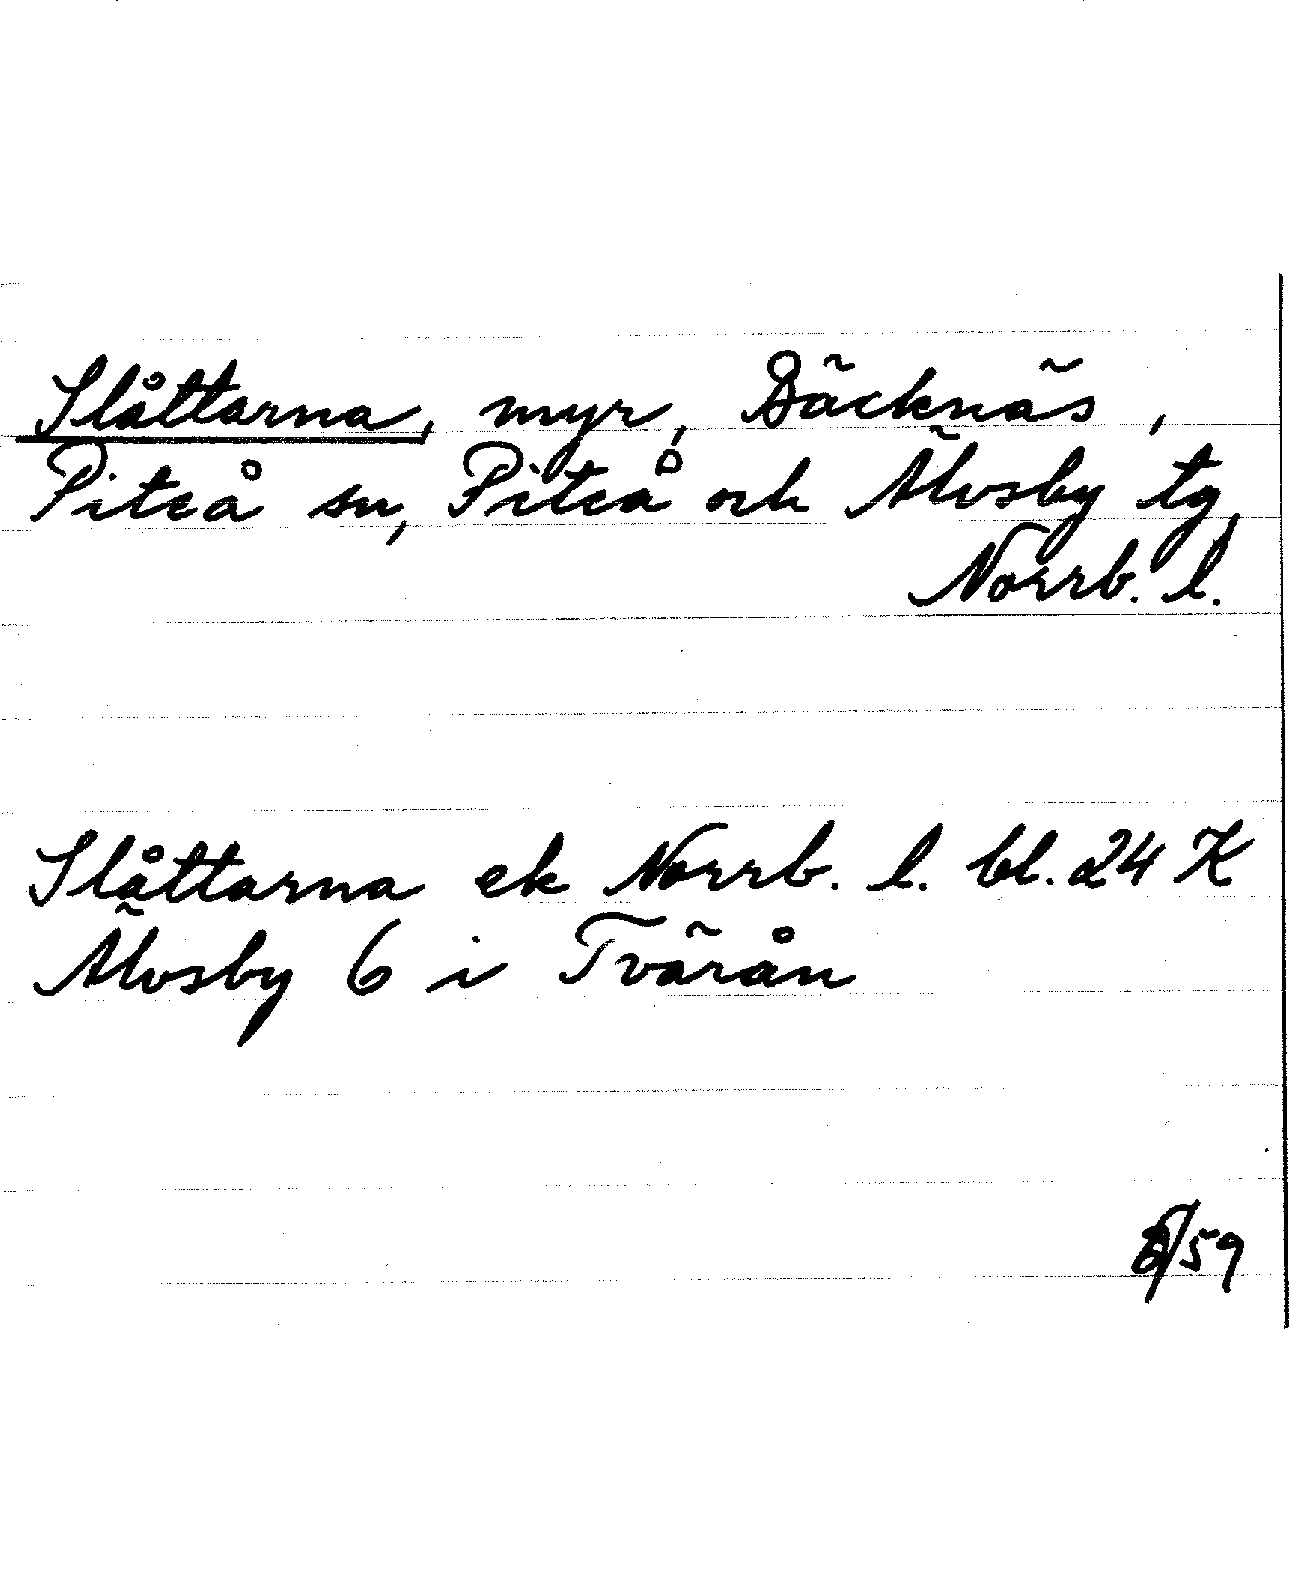 Slåttarna, myr, Bäcknäs,
Piteå sn, Piteå och Älvsby tg,
Norrb. l.
Slåttarna ek Norrb. l. bl. 24 K
Älvsby 6 i Tvärån
/59